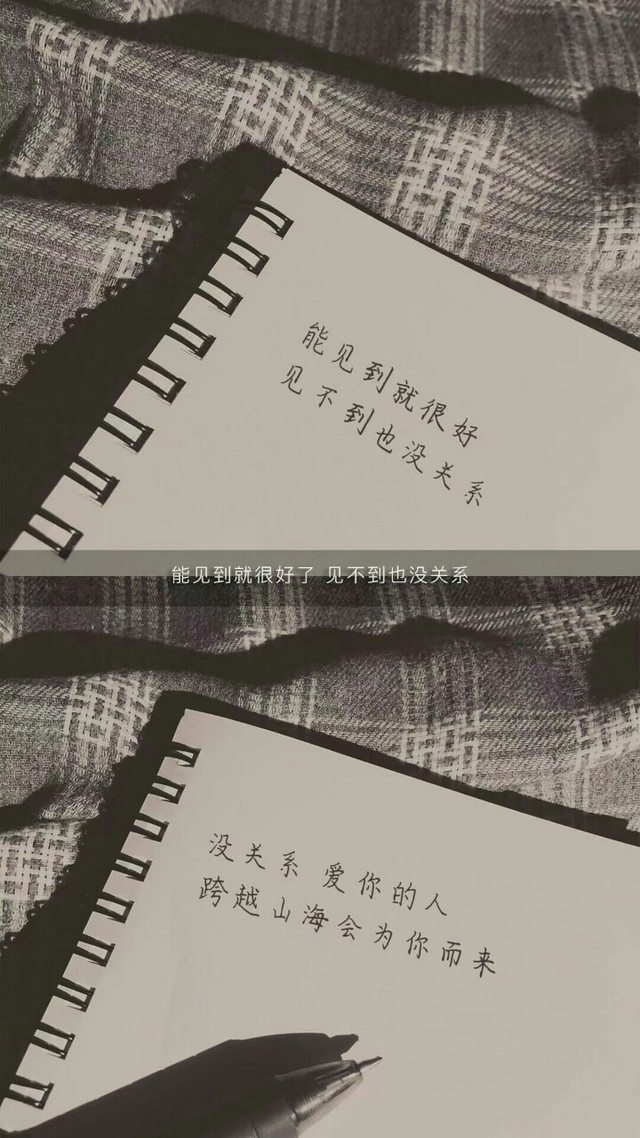 能见到就很好
见不到也没关系
能见到就很好了 见不到也没关系
没关系 爱你的人
跨越山海会为你而来